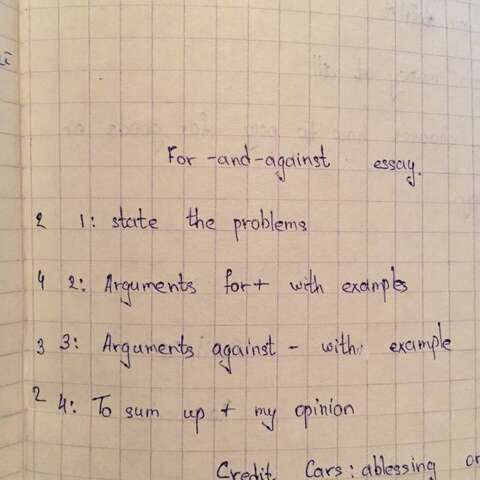 For-and-against essay.
2 1: state the problems
4 2: Arguments for+ with examples
3 3: Arguments against - with: example
2 4: To sum up + my opinion
Credit Cars: ablessing or